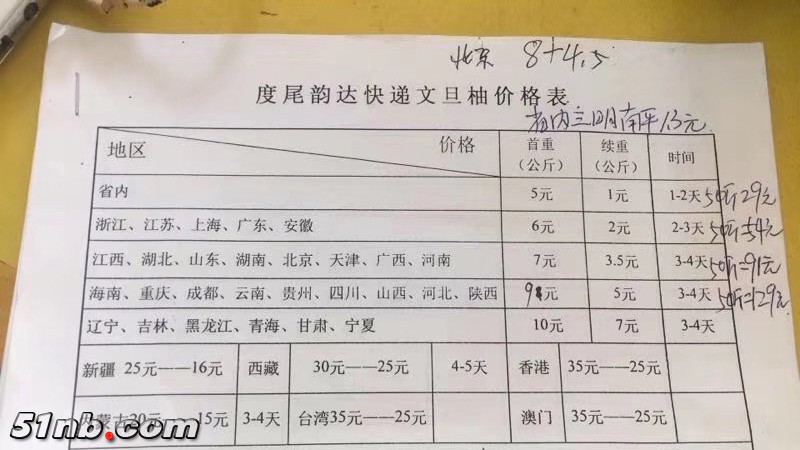 北京 8+4.5
度尾韵达快递文旦柚价格表
省内三明南平13元
地区 价格 首重（公斤） 续重（公斤） 时间
省内 5元 1元 1-2天 50斤29元
浙江、江苏、上海、广东、安徽 6元 2元 2-3天 50斤=54元
江西、湖北、山东、湖南、北京、天津、广西、河南 7元 3.5元 3-4天 50斤=91元
海南、重庆、成都、云南、贵州、四川、山西、河北、陕西 9元 5元 3-4天 50斤=129元
辽宁、吉林、黑龙江、青海、甘肃、宁夏 10元 7元 3-4天
新疆 25元——16元 西藏 30元——25元 4-5天 香港 35元——25元
蒙古30元——15元 3-4天 台湾35元——25元 澳门 35元——25元
51nb.com